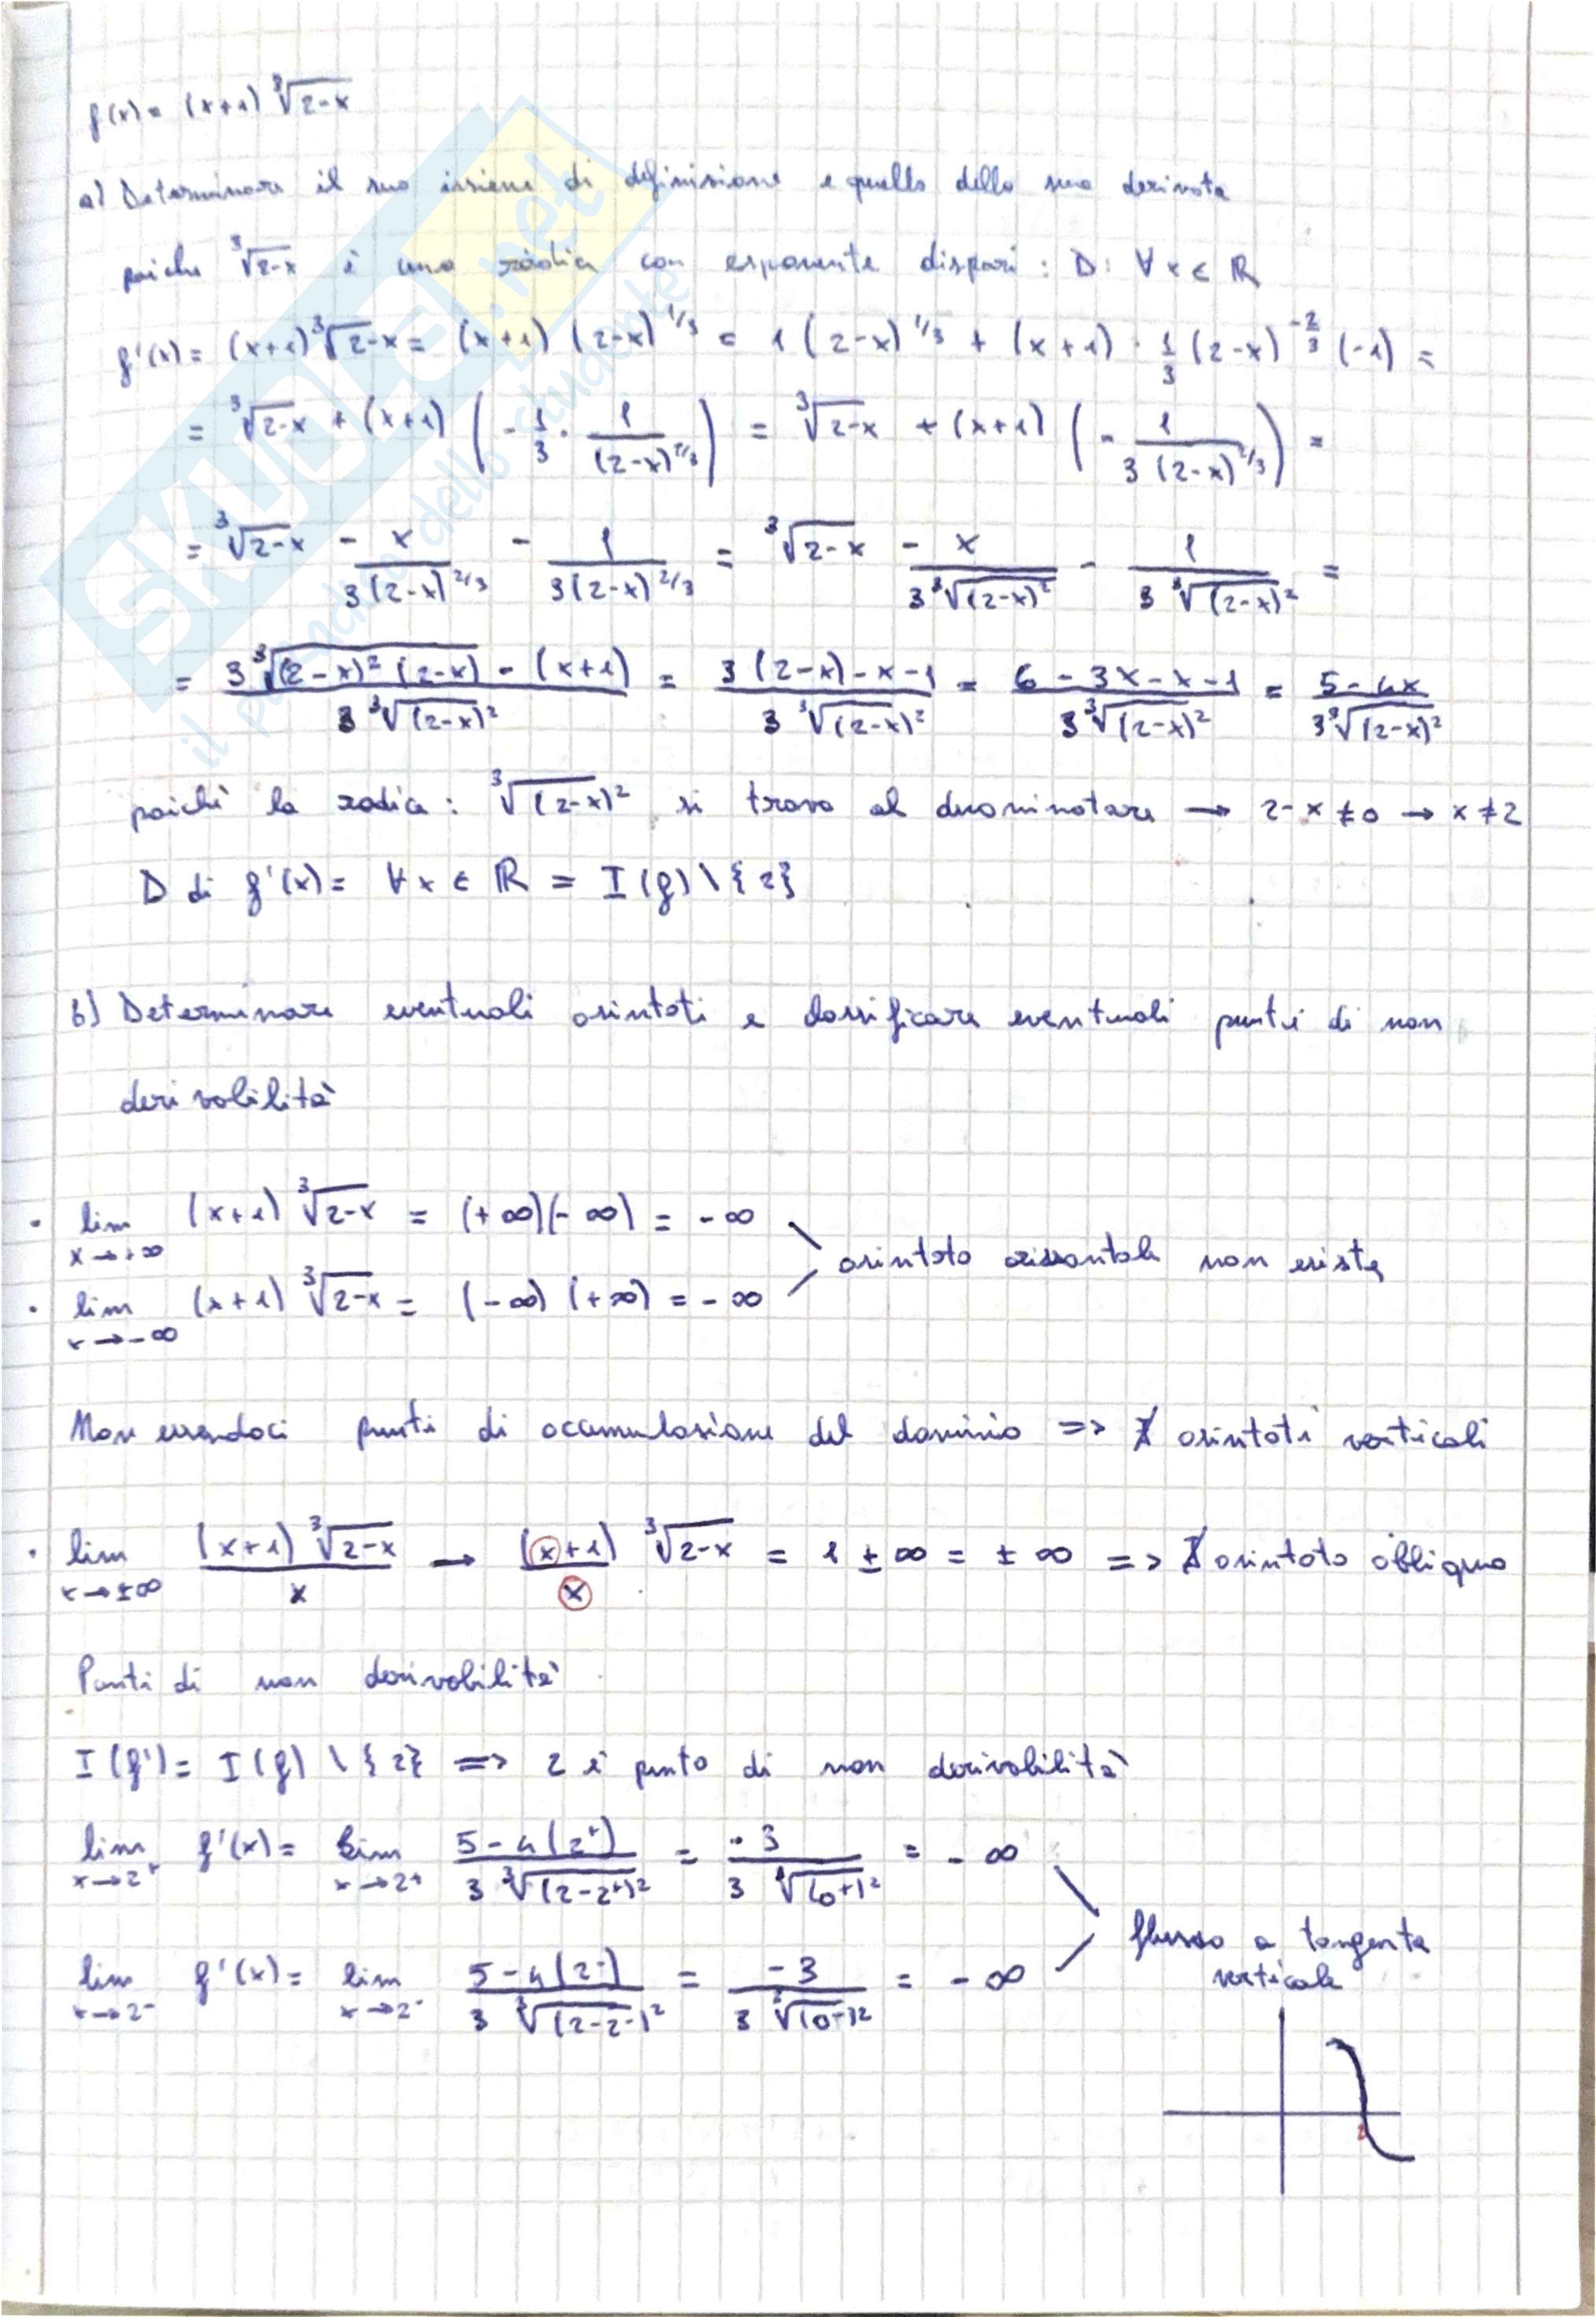 f(x) = (x+1) ∛(2-x)
a) Determinare il suo insieme di definizione e quello della sua derivata
poiche ∛(2-x) è una radice con esponente dispari : D: ∀ x ∈ ℝ
f'(x) = (x+1) ∛(2-x) = (x+1) (2-x)^(1/3) = 1 (2-x)^(1/3) + (x+1) · 1/3 (2-x)^(-2/3) (-1) =
= ∛(2-x) + (x+1) (- 1/3 · 1/(2-x)^(2/3)) = ∛(2-x) + (x+1) (- 1/(3 (2-x)^(2/3))) =
= ∛(2-x) - x/(3(2-x)^(2/3)) - 1/(3(2-x)^(2/3)) = ∛(2-x) - x/(3∛(2-x)²) - 1/(3∛(2-x)²) =
= (3∛((2-x)² (2-x)) - (x+1))/(3∛(2-x)²) = (3(2-x)-x-1)/(3∛(2-x)²) = (6-3x-x-1)/(3∛(2-x)²) = (5-4x)/(3∛(2-x)²)
poichè la radice : ∛(2-x)² si trova al denominatore → 2-x ≠ 0 → x ≠ 2
D di f'(x) = ∀ x ∈ ℝ = I(f) \ {2}
b) Determinare eventuali asintoti e classificare eventuali punti di non
derivabilità
· lim x→+∞ (x+1) ∛(2-x) = (+∞)(-∞) = -∞
asintoto orizzontale non esiste
· lim x→-∞ (x+1) ∛(2-x) = (-∞) (+∞) = -∞
Non essendoci punti di accumulazione del dominio => ∄ asintoti verticali
· lim x→±∞ ((x+1) ∛(2-x))/x → (x+1)/x ∛(2-x) = 1 ± ∞ = ± ∞ => ∄ asintoto obliquo
Punti di non derivabilità
I(f') = I(f) \ {2} => 2 è punto di non derivabilità
lim x→2⁺ f'(x) = lim x→2⁺ (5-4(2⁺))/(3∛(2-2⁺)²) = -3/(3∛(0⁺)²) = -∞
flesso a tangente
verticale
lim x→2⁻ f'(x) = lim x→2⁻ (5-4(2⁻))/(3∛(2-2⁻)²) = -3/(3∛(0⁻)²) = -∞
2
SKUOLA.net
il paradiso dello studente